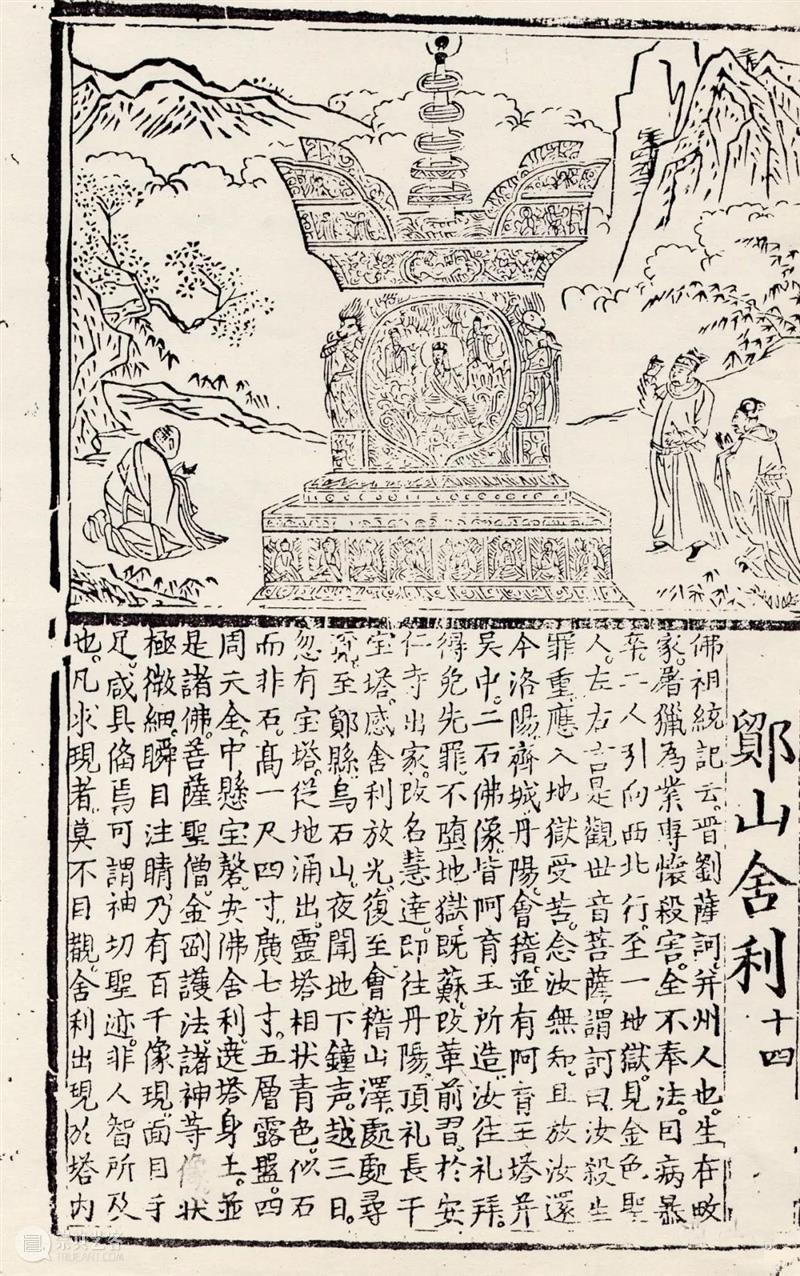 鄮山舍利 十四
佛祖統記云。晋劉薩訶。并州人也。生在畋
家。屠獵為業。專懷殺害。全不奉法。因病暴
卒。二人引向西北行。至一地獄。見金色聖
人。左右言是觀世音菩薩。謂訶曰。汝殺生
罪重。應入地獄受苦。念汝無知。且放汝還
今洛陽。齊城。丹陽。會稽。並有阿育王塔。并
吳中。二石佛像。皆阿育王所造。汝往礼拜。
得免先罪。不墮地獄。既蘇。改革前習。於安
仁寺出家。改名慧達。即往丹陽。頂礼長干
宝塔。感舍利放光。復至會稽山澤。處處尋
覓。至鄮縣烏石山。夜聞地下鐘声。越三日。
忽有宝塔。從地涌出。靈塔相狀青色。似石
而非石。高一尺四寸。廣七寸。五層露盤。四
周天全。中懸宝磬。安佛舍利。遶塔身上。並
是諸佛。菩薩聖僧。金剛護法。諸神等像。狀
極微細。瞬目注睛。乃有百千像現。面目手
足。咸具俻焉。可謂神切聖迹。非人智所及
也。凡求現者。莫不目覩。舍利出現於塔内
崇真艺客
TRUEART.COM